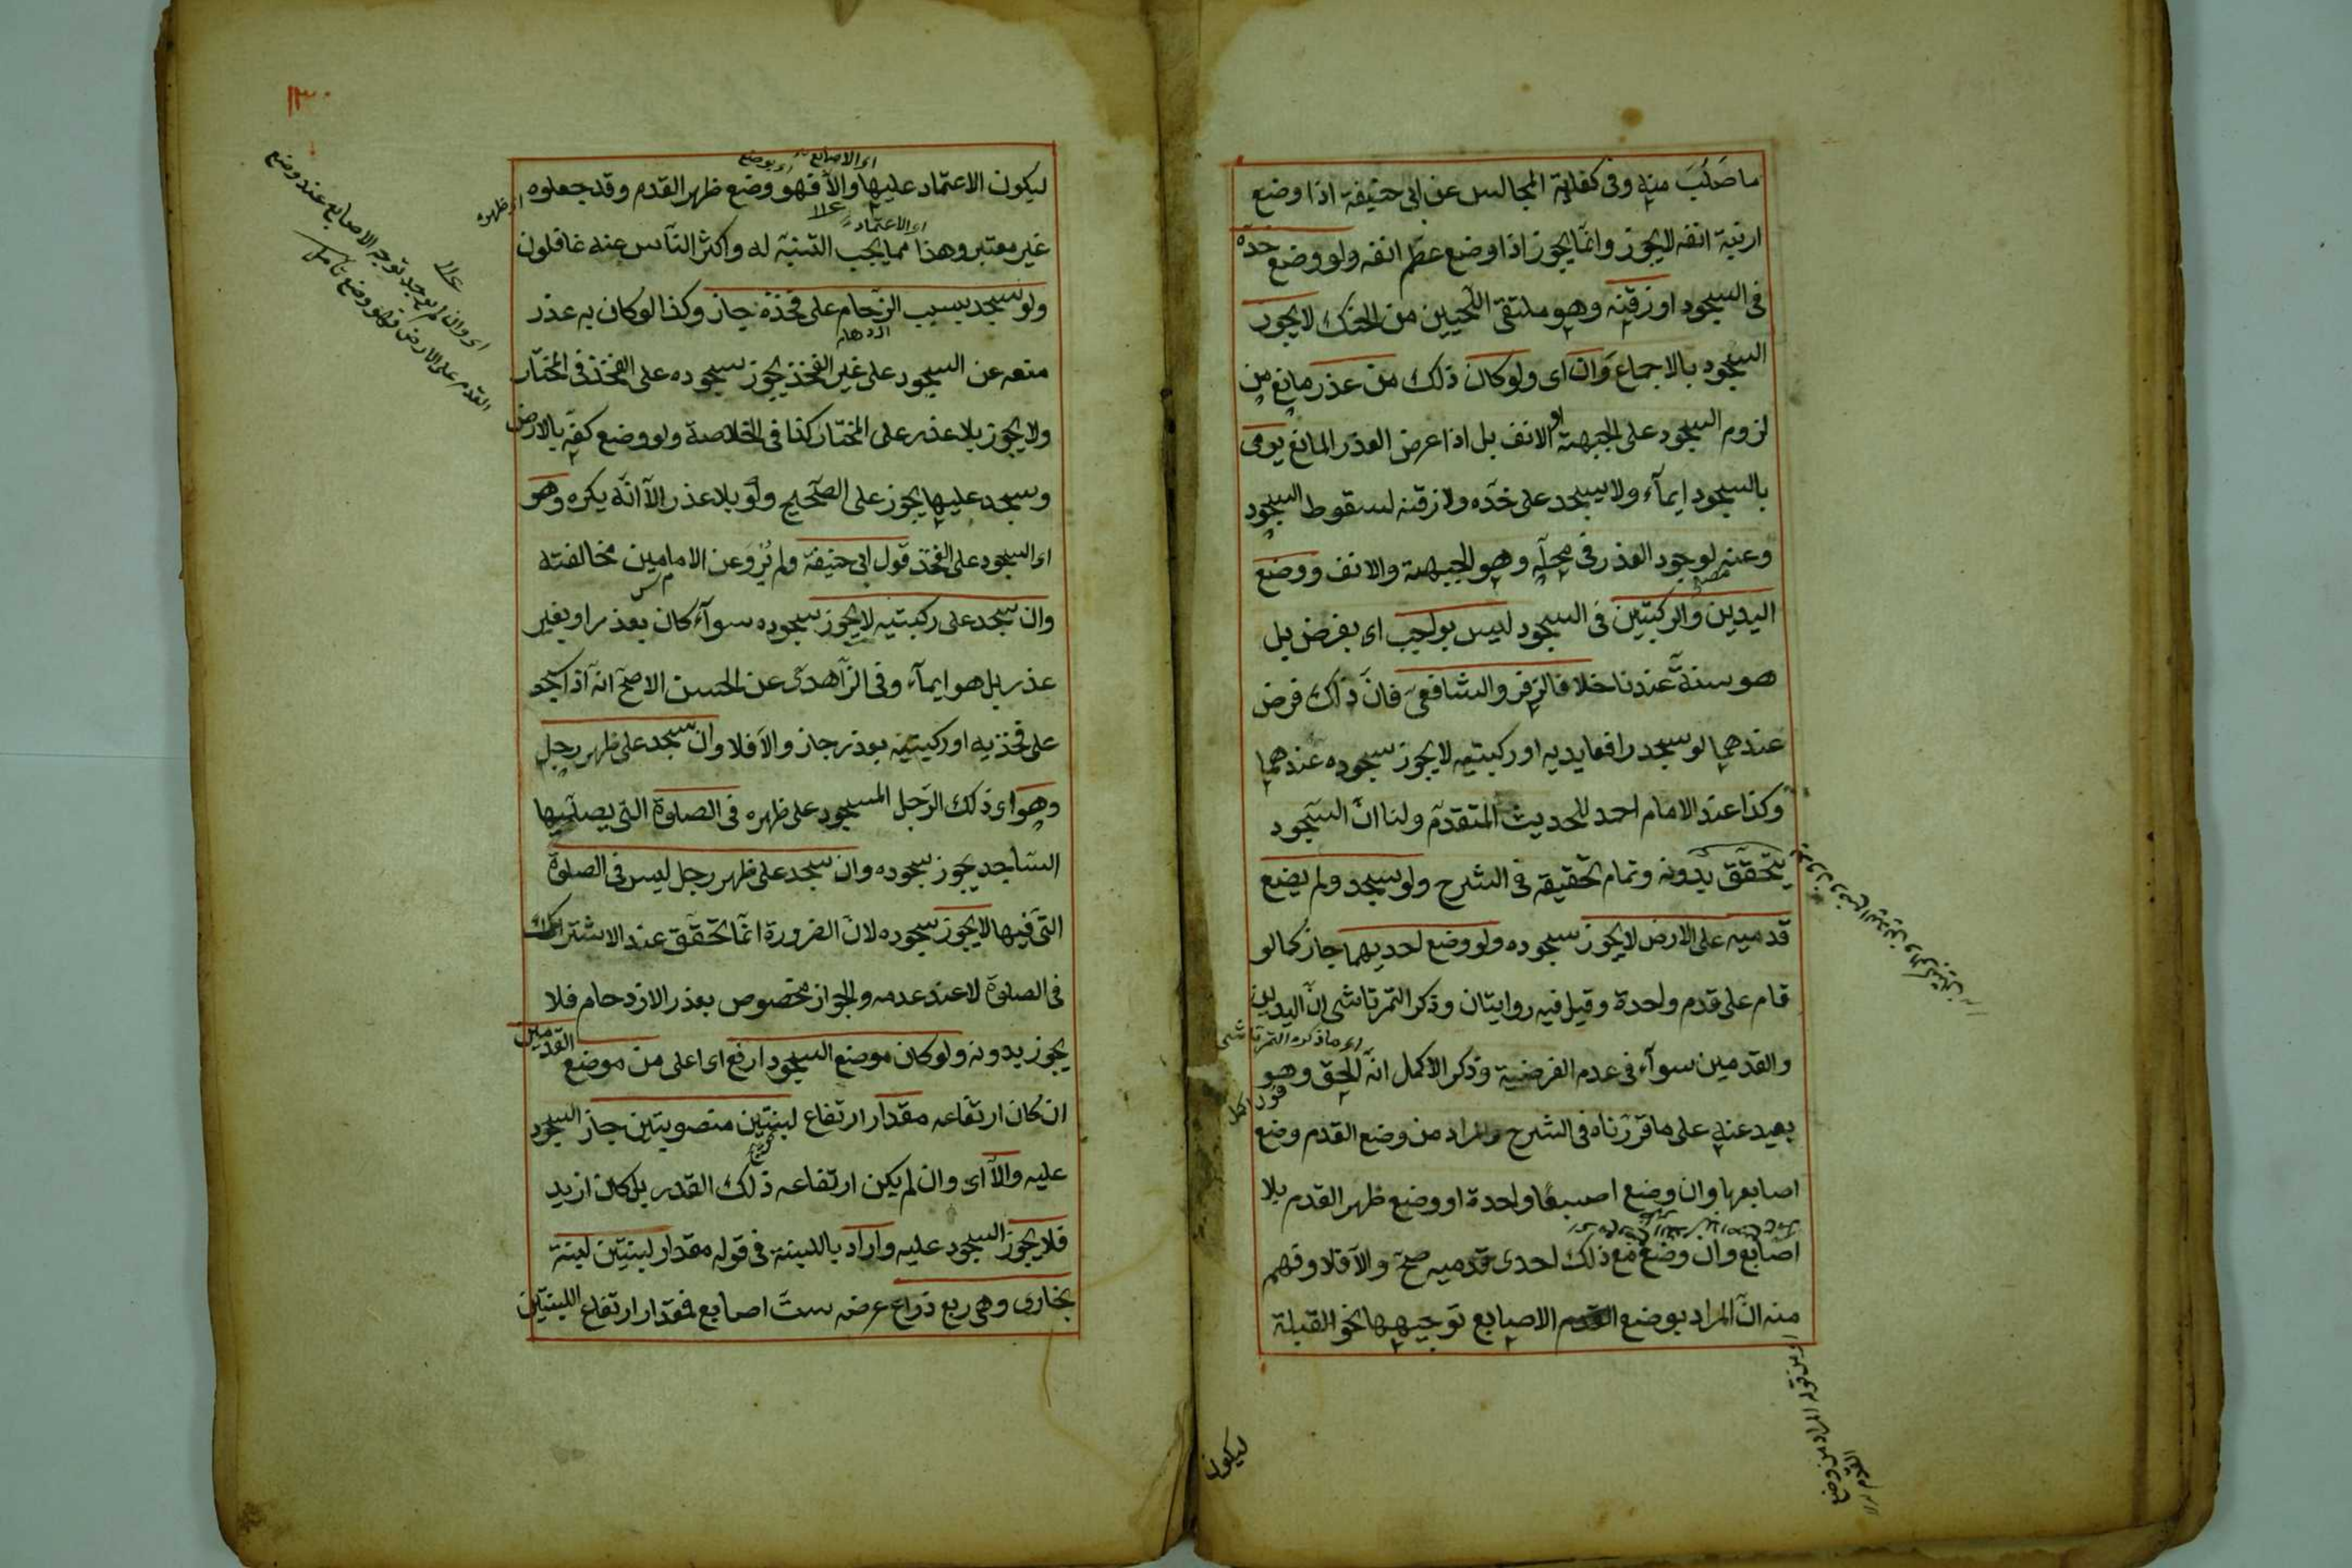 ما صَلُبَ منه وفى كفاية المجالس عن ابى حنيفة اذا وضع
ارنبة انفه لا يجوز وانما يجوز اذا وضع عظم انفه ولو وضع خده
فى السجود او زقنه وهو ملتقى اللحيين من الحنك لا يجوز
السجود بالاجماع وان اى ولو كان ذلك من عذر مانع من
لزوم السجود على الجبهة او الانف بل اذا عرض العذر المانع يومى
بالسجود ايمآء ولا يسجد على خده ولا زقنه لسقوط السجود
وعنه لوجود العذر فى محله وهو الجبهة والانف ووضع
اليدين والركبتين فى السجود ليس بواجب اى بفرض بل
هو سنة عندنا خلافا لزفر والشافعى فان ذلك فرض
عندهما لو سجد رافعا يديه او ركبتيه لا يجوز سجوده عندهما
وكذا عند الامام احمد للحديث المتقدم ولنا ان السجود
يتحقق بدونه وتمام تحقيقه فى الشرح ولو سجد ولم يضع
قدميه على الارض لا يجوز سجوده ولو وضع احديهما جاز كما لو
قام على قدم واحدة وقيل فيه روايتان وذكر التمرتاشى ان اليدين
اى ما ذكره التمرتاشى
والقدمين سوآء فى عدم الفرضية وذكر الاكمل انه الحق وهو
بعيد عنه على ما قررناه فى الشرح والمراد من وضع القدم وضع
اصابعها وان وضع اصبعا واحدة او وضع ظهر القدم بلا
اصابع وان وضع مع ذلك احدى قدميه صح والا فلا وفهم
منه ان المراد بوضع القدم الاصابع توجيهها نحو القبلة
من قوله المراد من وضع
القدم
ليكون
١٣٠
اى الاصابع
اى بوضع
ليكون الاعتماد عليها والا فهو وضع ظهر القدم وقد جعلوه
اى ظهره
اى الاعتماد
غير معتبر وهذا مما يجب التنبه له واكثر الناس عنه غافلون
ولو سجد بسبب الزحام على فخذه جاز وكذا لو كان به عذر
منعه عن السجود على غير الفخذ يجوز سجوده على الفخذ فى المختار
ولا يجوز بلا عذر على المختار كذا فى الخلاصة ولو وضع كفه بالارض
وسجد عليها يجوز على الصحيح ولو بلا عذر الا انه يكره وهو
اى السجود على الفخذ قول ابى حنيفة ولم يُروَ عن الامامين مخالفته
وان سجد على ركبتيه لا يجوز سجوده سوآء كان بعذر او بغير
عذر بل هو ايمآء وفى الزاهدى عن الحسن الاصح انه اذا سجد
على فخذيه او ركبتيه بعذر جاز والا فلا وان سجد على ظهر رجل
وهو اى ذلك الرجل المسجود على ظهره فى الصلوة التى يصليها
الساجد يجوز سجوده وان سجد على ظهر رجل ليس فى الصلوة
التى فيها لا يجوز سجوده لان الضرورة انما تحقق عند الاشتراك
فى الصلوة لا عند عدمه والجواز مخصوص بعذر الازدحام فلا
يجوز بدونه ولو كان موضع السجود ارفع اى اعلى من موضع القدمين
ان كان ارتفاعه مقدار ارتفاع لبنتين منصوبتين جاز السجود
عليه والا اى وان لم يكن ارتفاعه ذلك القدر بل كان ازيد
فلا يجوز السجود عليه واراد باللبنة فى قوله مقدار لبنتين لبنة
بخارى وهى ربع ذراع عرض ست اصابع فمقدار ارتفاع اللبنتين
اى وان لم يوجد توجه الاصابع عند وضع
القدم على الارض فهو وضع تأمل